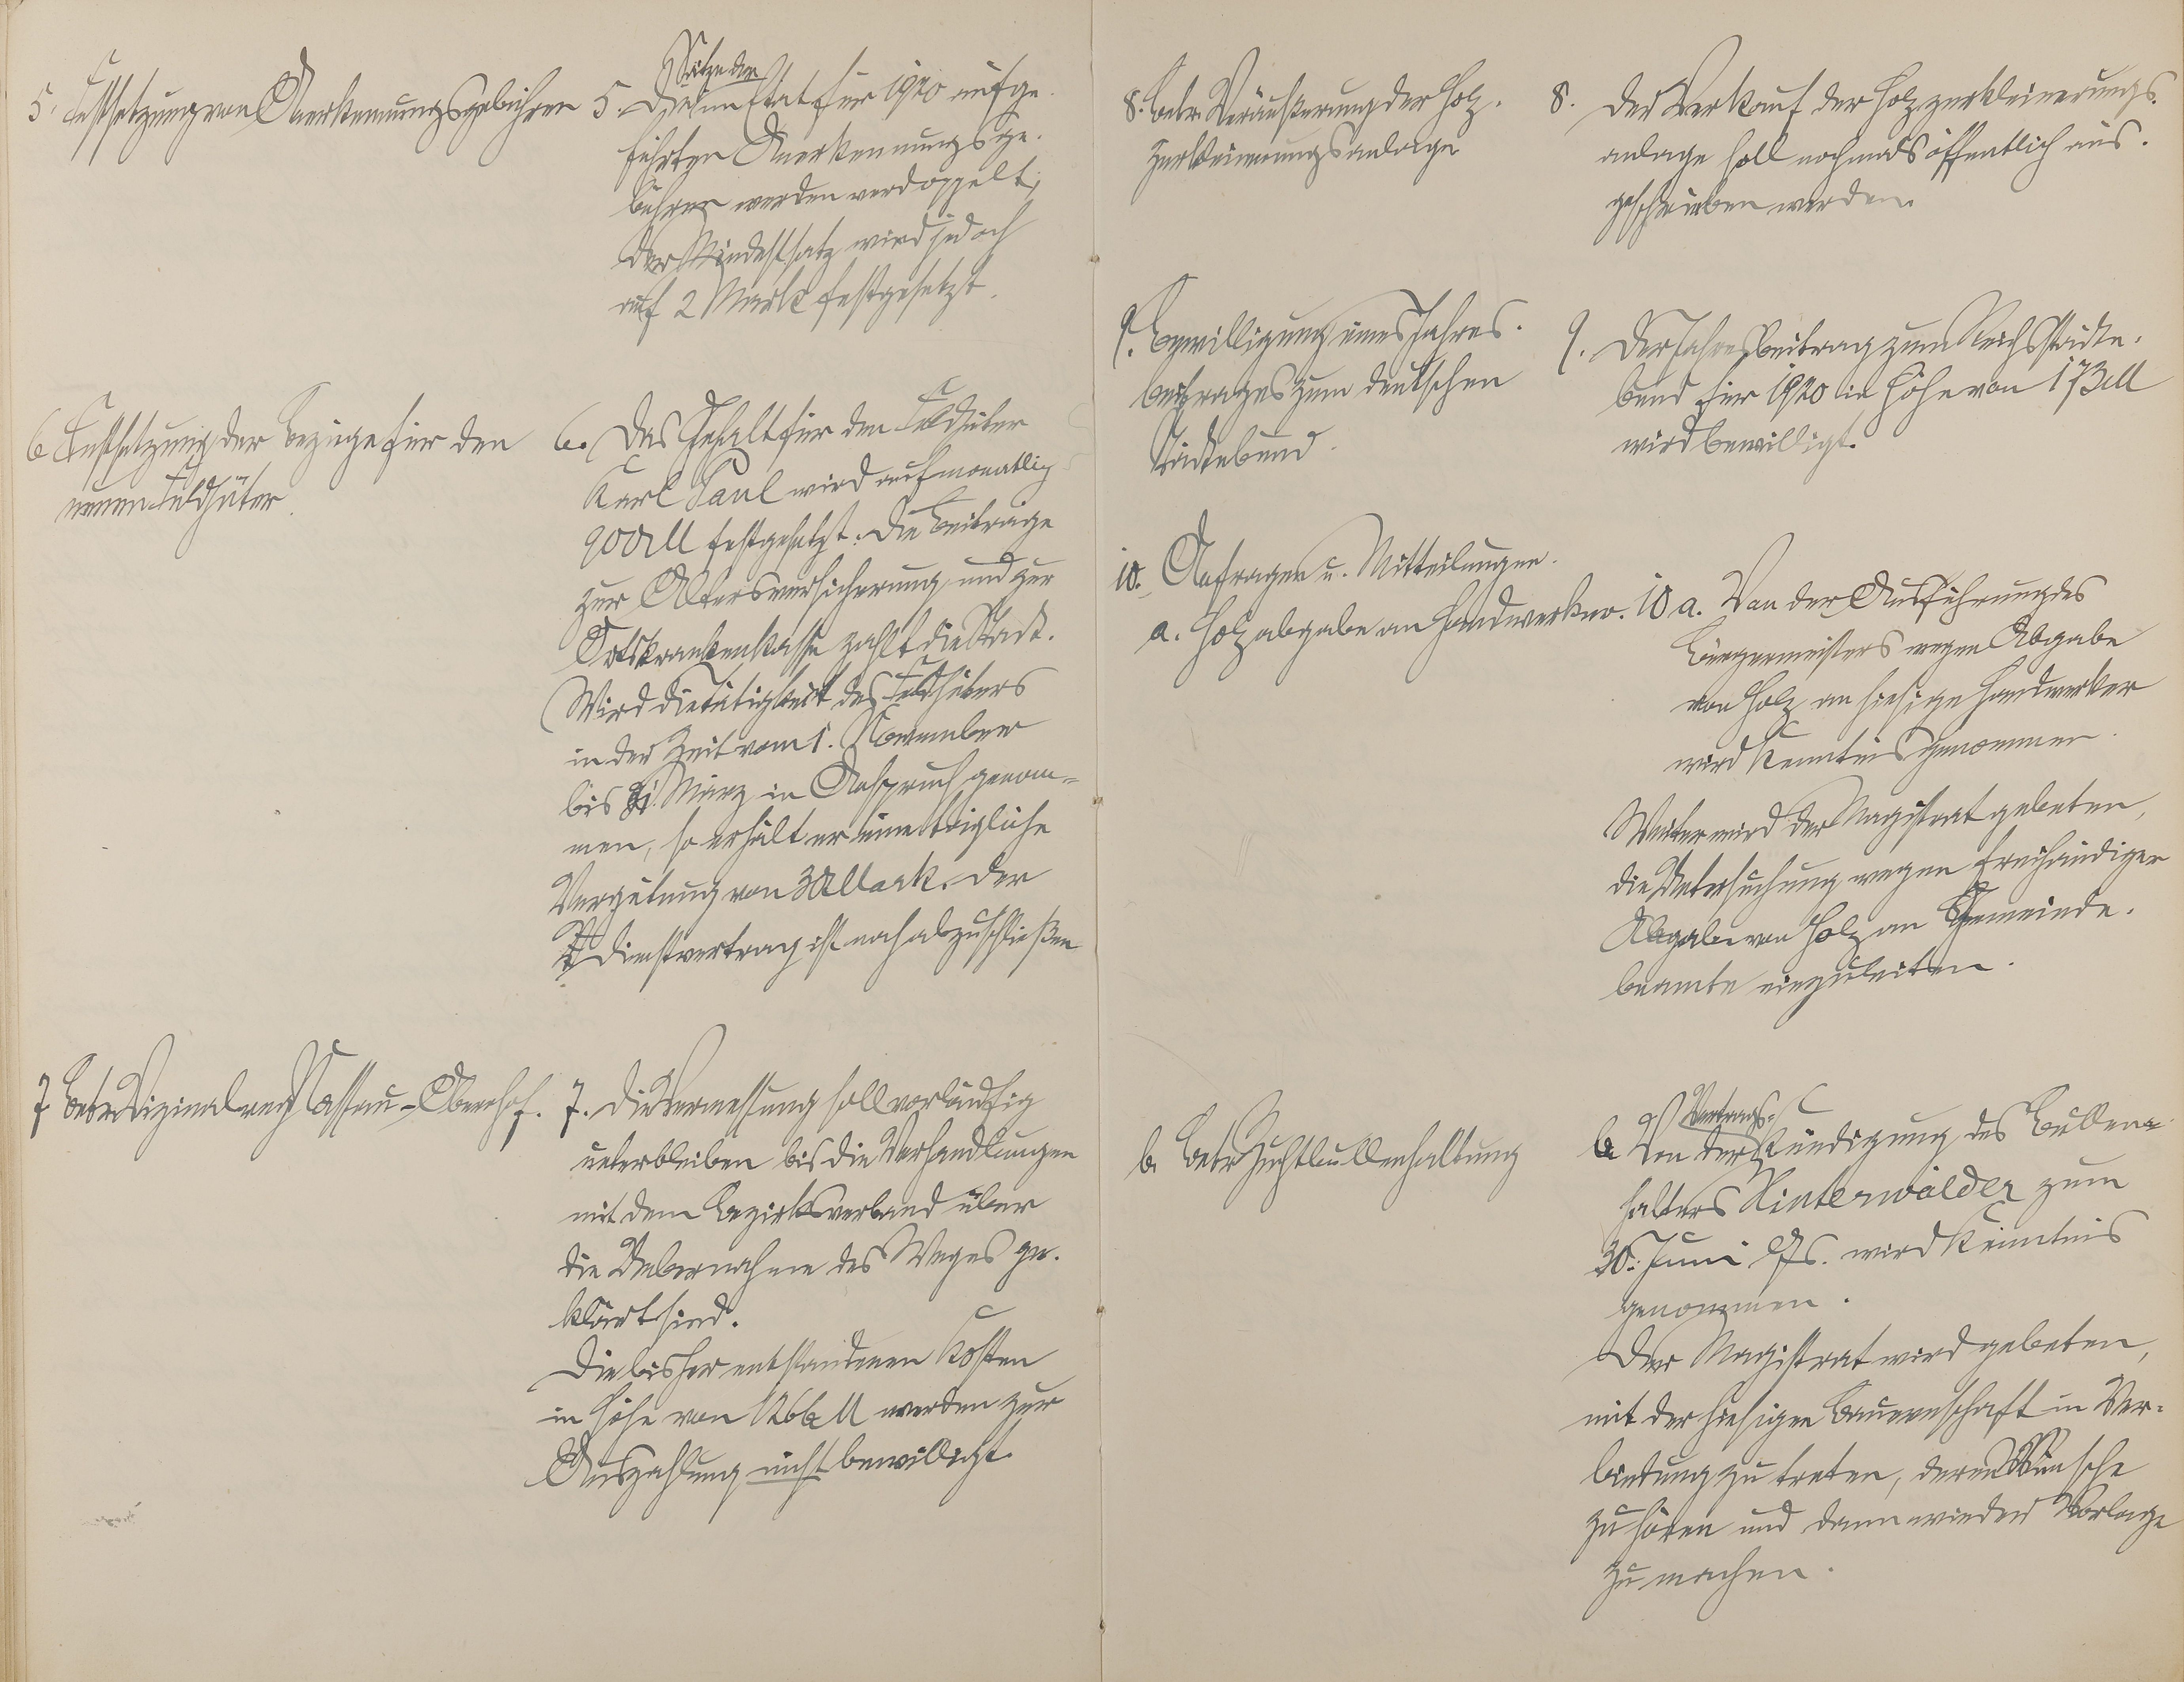 5. Festsetzung von Anerkennungsgebühren
5. Die im Etat für 1920 aufge-
Sätze der
führten Anerkennungsge-
bühren werden verdoppelt,
der Mindestsatz wird jedoch
auf 2 Mark festgesetzt.
6. Festsetzung der Bezüge für den
neuen Feldhüter.
6. Das Gehalt für den Feldhüter
Karl Paul wird auf monatlich
900 M festgesetzt. Die Beiträge
zur Altersversicherung und zur
Ortskrankenkasse zahlt die Stadt.
Wird die Tätigkeit des Feldhüters
in der Zeit vom 1. November
bis 31. März in Anspruch genom=
men, so erhält er eine tägliche
Vergütung von 30 Mark. Der
Dienstvertrag ist noch abzuschließen
7. Betr. Vizinalweg Nassau-Obernhof.
7. Die Vermessung soll vorläufig
unterbleiben bis die Verhandlungen
mit dem Bezirksverband über
die Uebernahme des Weges ge-
klärt sind.
Die bisher entstandenen Kosten
in Höhe von M werden zur
Auszahlung nicht bewilligt.
8. Betr. Veräußerung der Holz-
zerkleinerungsanlage
8. Der Verkauf der Holzzerkleinerungs-
anlage soll nochmals öffentlich aus-
geschrieben werden.
9. Bewilligung eines Jahres-
beitrages zum deutschen
Städtebund.
9. Der Jahresbeitrag zum Reichsstädte-
bund für 1920 in Höhe von 173 M
wird bewilligt.
10. Anfragen u. Mitteilungen.
a. Holzabgabe an Handwerker.
10 a. Von der Ausführung des
Bürgermeisters wegen Abgabe
von Holz an hiesige Handwerker
wird Kenntnis genommen.
Weiter wird der Magistrat gebeten,
die Untersuchung wegen freihändiger
Abgabe von Holz an Gemeinde-
beamte einzuleiten.
b. Betr. Zuchtbullenhaltung
b. Von der Kündigung des Bullen=
Vertrags-
halters Hinterwälder zum
30. Juni ds. Js. wird Kenntnis
genommen.
Der Magistrat wird gebeten,
mit der hiesigen Bauernschaft in Ver-
bindung zu treten, deren Wünsche
zu hören und dann wieder Vorlage
zu machen.